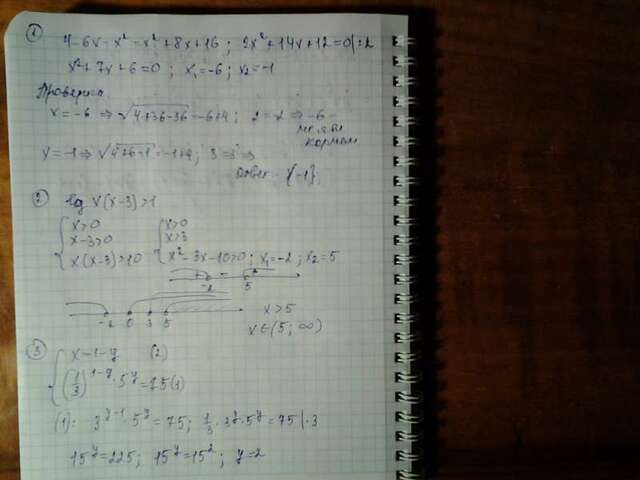 1
4-6x-x²=x²+8x+16; 2x²+14x+12=0|:2
x²+7x+6=0; x₁=-6; x₂=-1
Проверка
x=-6 ⇒ √4+36-36=-6+4; 2=-2 ⇒ -6 -
корнем
x=-1 ⇒ √4+6-1=-1+4; 3=3 ⇒
Ответ: {-1}.
2
lg x(x-3)>1
{x>0 {x>0
x-3>0 x>3
x(x-3)>10 x²-3x-10>0; x₁=-2; x₂=5
+ - +
-2 5
-2 0 3 5
x>5
x∈(5; ∞)
3
{x=1-y (2)
(1/3)^(1-y)·5^y=75 (1)
(1): 3^(y-1)·5^y=75; 1/3·3^y·5^y=75|·3
15^y=225; 15^y=15²; y=2